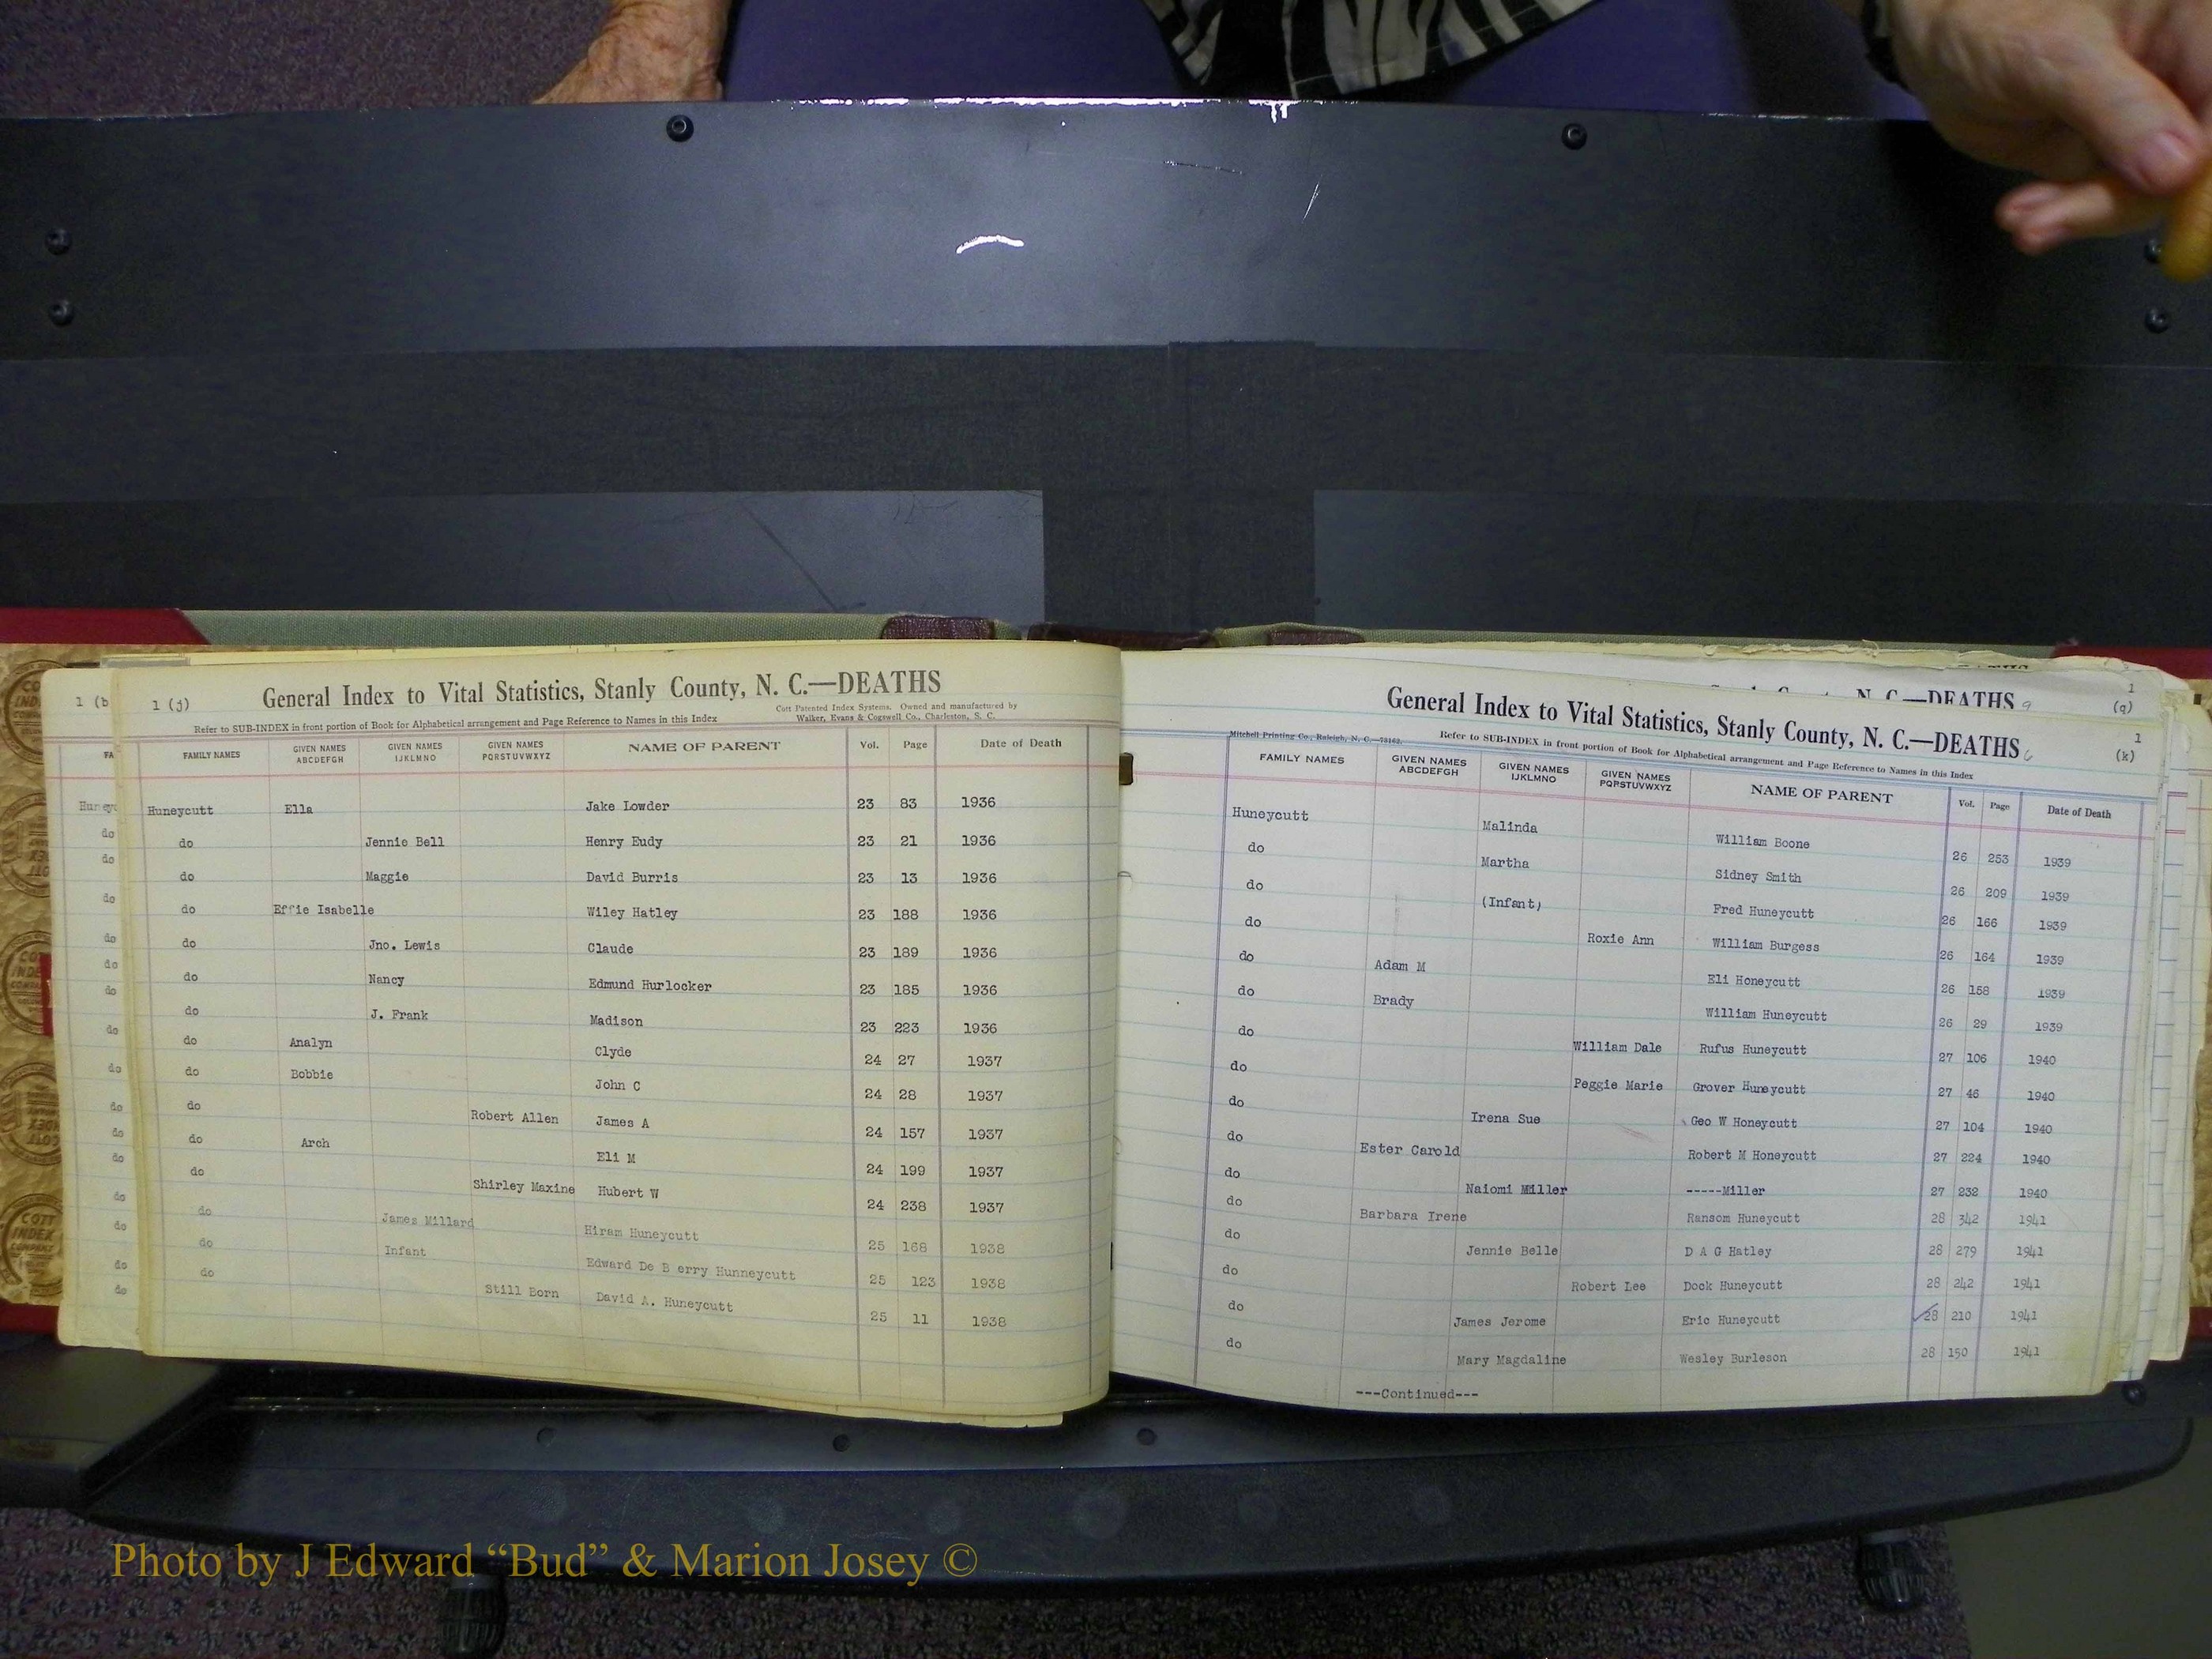 1 (b
1 (j)
General Index to Vital Statistics, Stanly County, N. C.—DEATHS
Cott Patented Index Systems. Owned and manufactured by
Refer to SUB-INDEX in front portion of Book for Alphabetical arrangement and Page Reference to Names in this Index
Walker, Evans & Cogswell Co., Charleston, S. C.
FAMILY NAMES GIVEN NAMES ABCDEFGH GIVEN NAMES IJKLMNO GIVEN NAMES PQRSTUVWXYZ NAME OF PARENT Vol. Page Date of Death
Huneycutt Ella Jake Lowder 23 83 1936
do Jennie Bell Henry Eudy 23 21 1936
do Maggie David Burris 23 13 1936
do Effie Isabelle Wiley Hatley 23 188 1936
do Jno. Lewis Claude 23 189 1936
do Nancy Edmund Hurlocker 23 185 1936
do J. Frank Madison 23 223 1936
do Analyn Clyde 24 27 1937
do Bobbie John C 24 28 1937
do Robert Allen James A 24 157 1937
do Arch Eli M 24 199 1937
do Shirley Maxine Hubert W 24 238 1937
do James Millard Hiram Huneycutt 25 168 1938
do Infant Edward De B erry Hunneycutt 25 123 1938
do Still Born David A. Huneycutt 25 11 1938
N. C.—DEATHS 9
1
(q)
General Index to Vital Statistics, Stanly County, N. C.—DEATHS
1
(k)
Mitchell Printing Co., Raleigh, N. C.—73162.
Refer to SUB-INDEX in front portion of Book for Alphabetical arrangement and Page Reference to Names in this Index
FAMILY NAMES GIVEN NAMES ABCDEFGH GIVEN NAMES IJKLMNO GIVEN NAMES PQRSTUVWXYZ NAME OF PARENT Vol. Page Date of Death
Huneycutt Malinda William Boone 26 253 1939
do Martha Sidney Smith 26 209 1939
do (Infant) Fred Huneycutt 26 166 1939
do Roxie Ann William Burgess 26 164 1939
do Adam M Eli Honeycutt 26 158 1939
do Brady William Huneycutt 26 29 1939
do William Dale Rufus Huneycutt 27 106 1940
do Peggie Marie Grover Huneycutt 27 46 1940
do Irena Sue Geo W Honeycutt 27 104 1940
do Ester Carold Robert M Honeycutt 27 224 1940
do Naiomi Miller -----Miller 27 232 1940
do Barbara Irene Ransom Huneycutt 28 342 1941
do Jennie Belle D A G Hatley 28 279 1941
do Robert Lee Dock Huneycutt 28 242 1941
do James Jerome Eric Huneycutt 28 210 1941
do Mary Magdaline Wesley Burleson 28 150 1941
---Continued---
Photo by J Edward “Bud” & Marion Josey ©